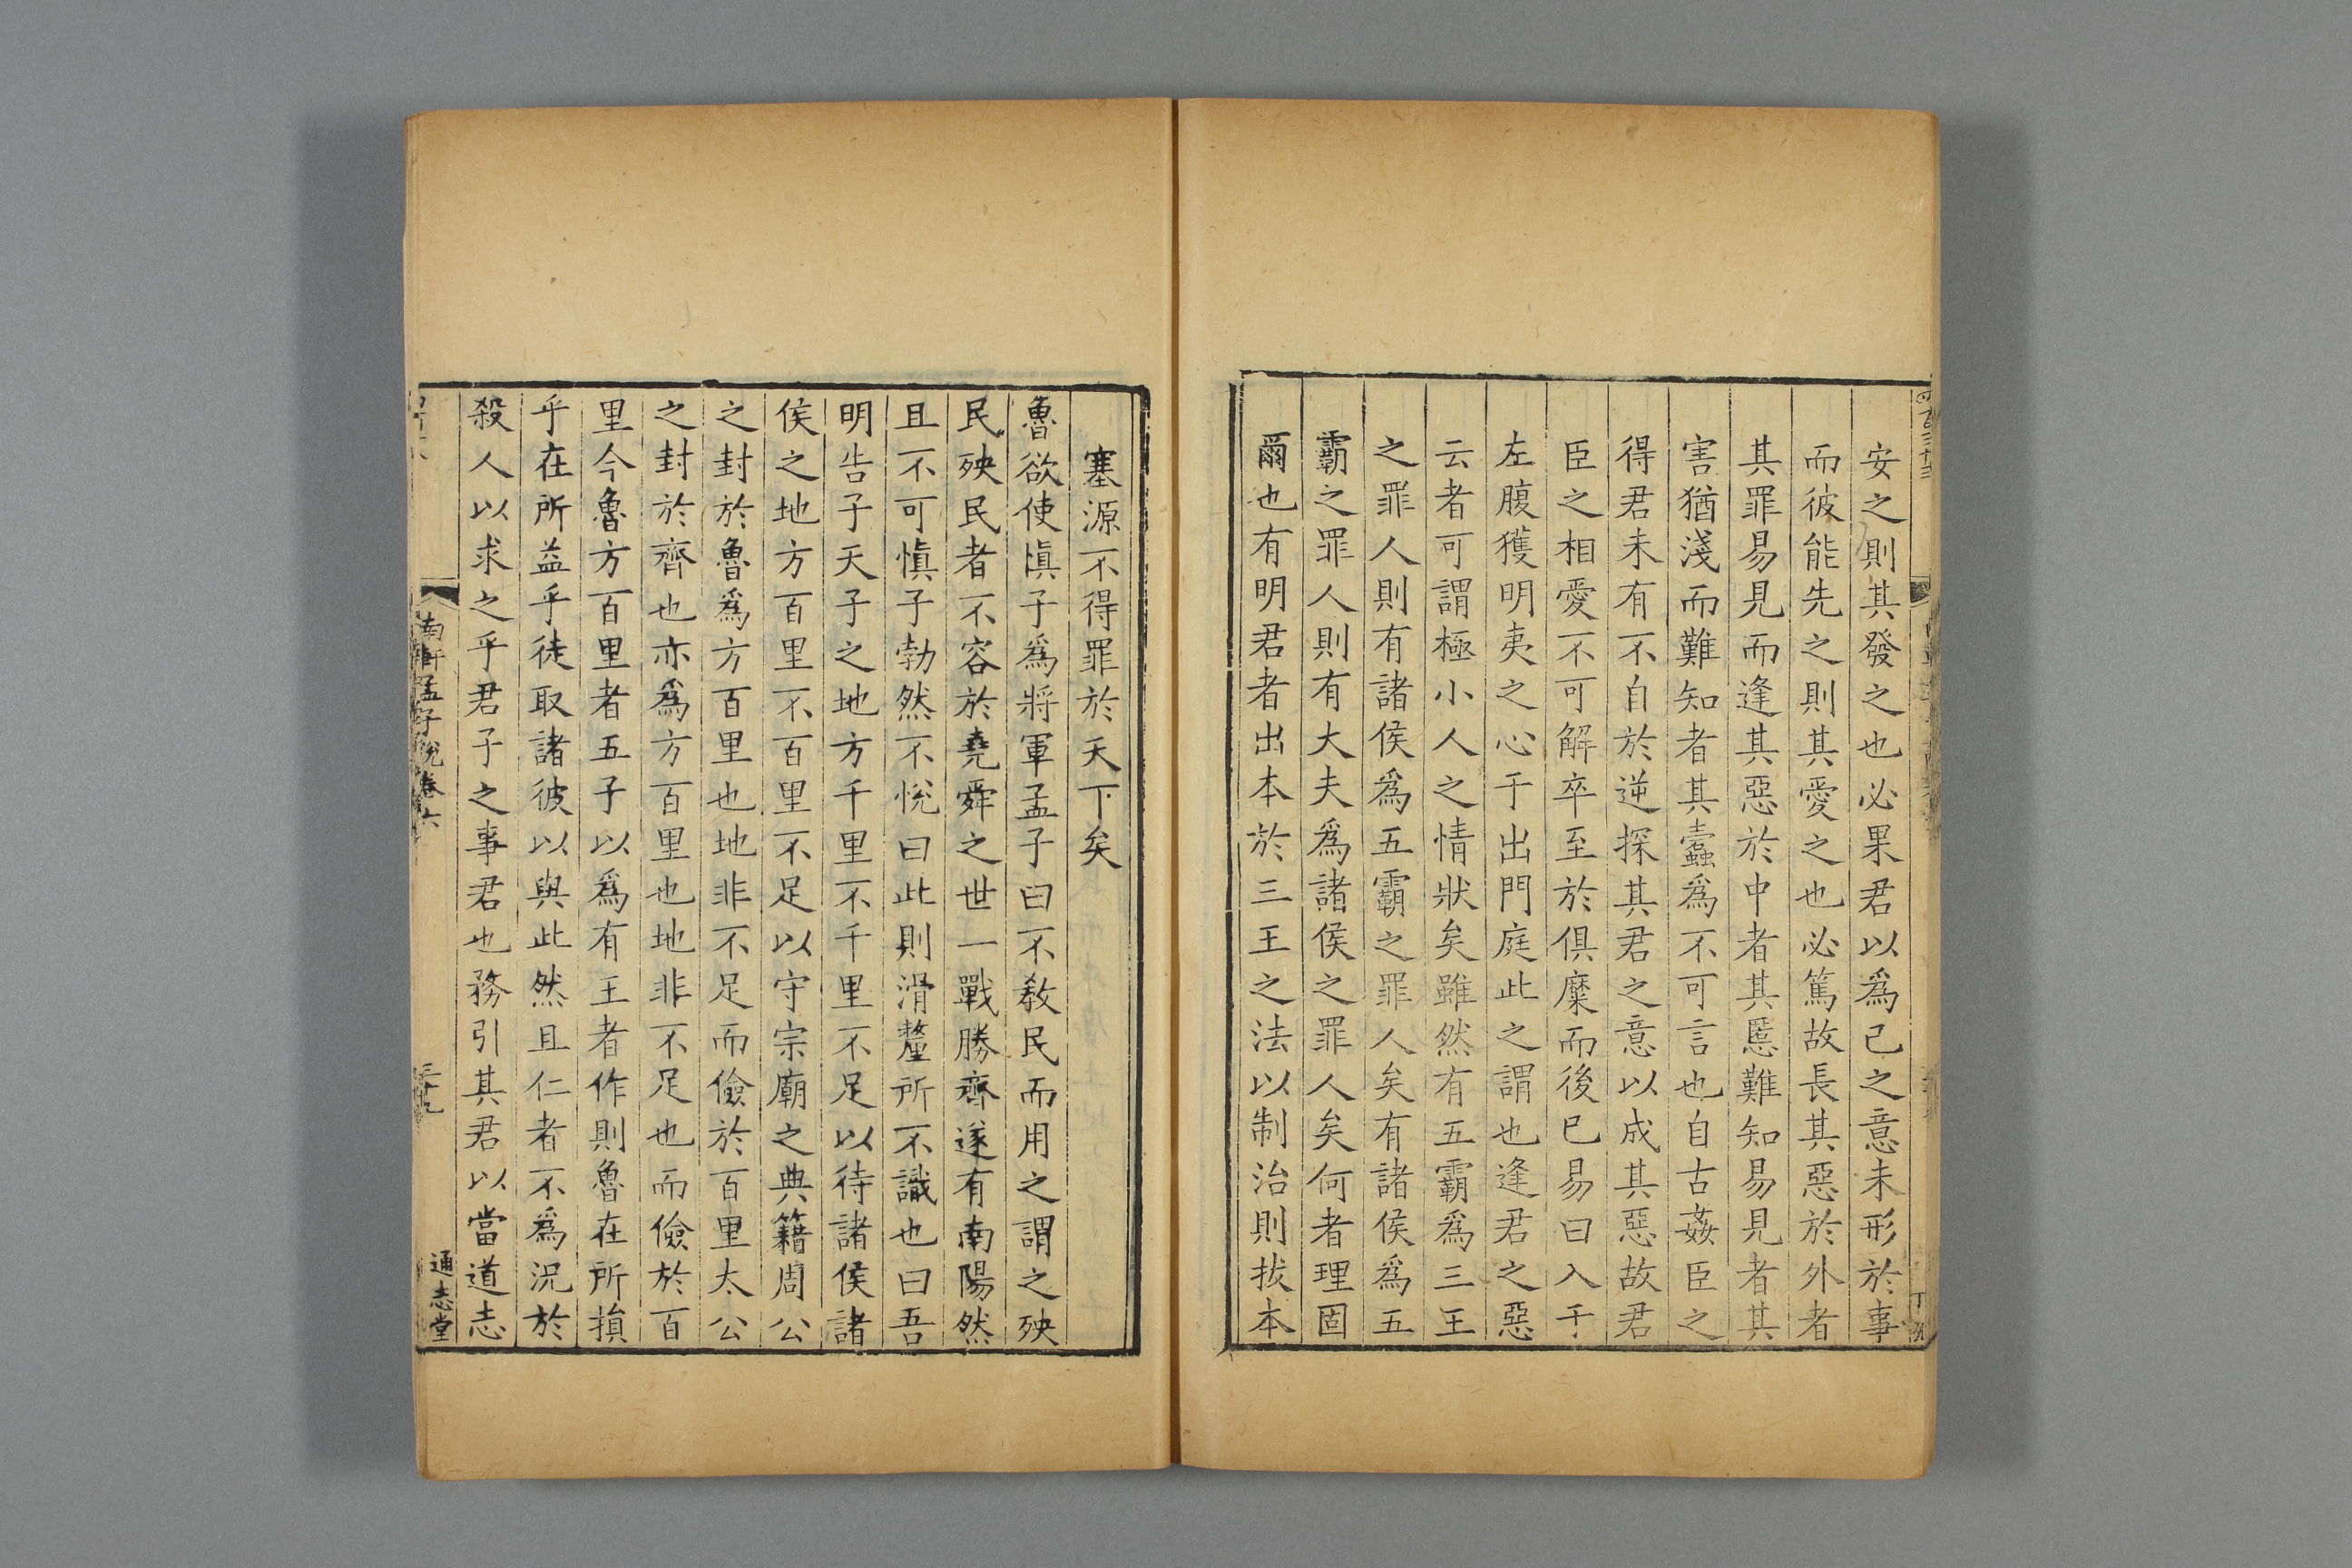 安之則其發之也必果君以爲己之意未形於事
而彼能先之則其愛之也必篤故長其惡於外者
其罪易見而逢其惡於中者其慝難知易見者其
害猶淺而難知者其蠹爲不可言也自古姦臣之
得君未有不自於逆探其君之意以成其惡故君
臣之相愛不可解卒至於俱糜而後已易曰入于
左腹獲明夷之心于出門庭此之謂也逢君之惡
云者可謂極小人之情狀矣雖然有五霸爲三王
之罪人則有諸侯爲五霸之罪人矣有諸侯爲五
霸之罪人則有大夫爲諸侯之罪人矣何者理固
爾也有明君者出本於三王之法以制治則拔本
塞源不得罪於天下矣
魯欲使愼子爲將軍孟子曰不敎民而用之謂之殃
民殃民者不容於堯舜之世一戰勝齊遂有南陽然
且不可愼子勃然不悅曰此則滑釐所不識也曰吾
明告子天子之地方千里不千里不足以待諸侯諸
侯之地方百里不百里不足以守宗廟之典籍周公
之封於魯爲方百里也地非不足而儉於百里太公
之封於齊也亦爲方百里也地非不足也而儉於百
里今魯方百里者五子以爲有王者作則魯在所損
乎在所益乎徒取諸彼以與此然且仁者不爲況於
殺人以求之乎君子之事君也務引其君以當道志
南軒孟子說卷六
通志堂